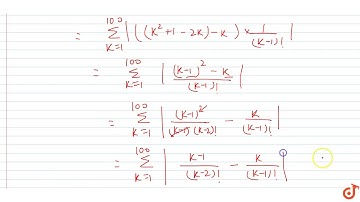 = \sum_{K=1}^{100} | ((K^2+1-2K)-K) × \frac{1}{(K-1)!} |
= \sum_{K=1}^{100} | \frac{(K-1)^2-K}{(K-1)!} |
= \sum_{K=1}^{100} | \frac{(K-1)^2}{(K-1)(K-2)!} - \frac{K}{(K-1)!} |
= \sum_{K=1}^{100} | \frac{K-1}{(K-2)!} - \frac{K}{(K-1)!} |